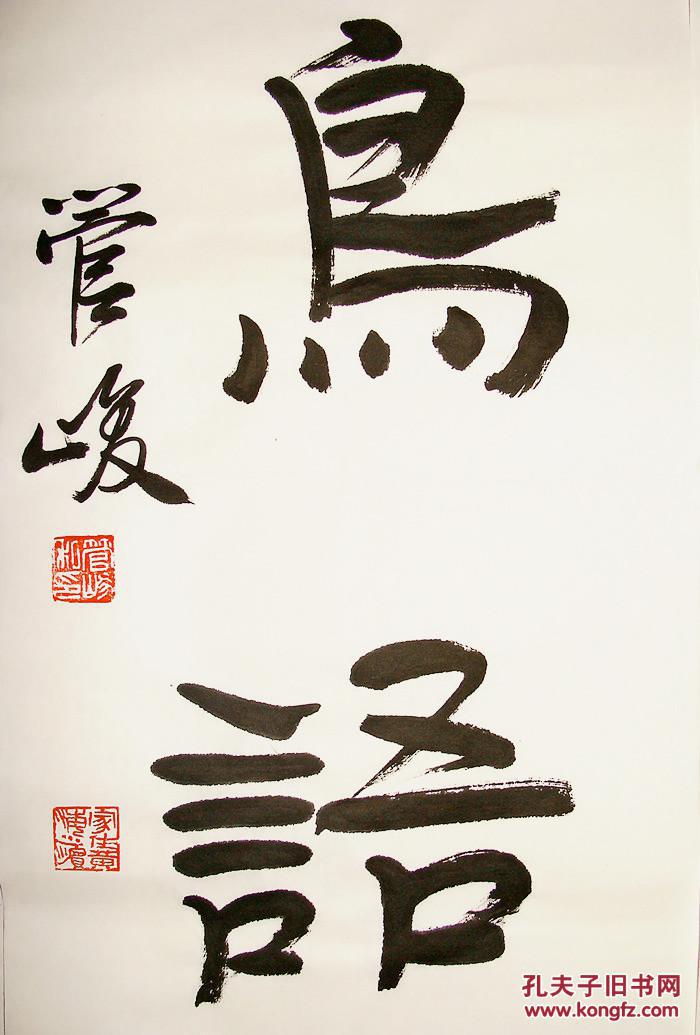 鳥語
管峻
管峻私印
孔夫子旧书网
www.kongfz.com